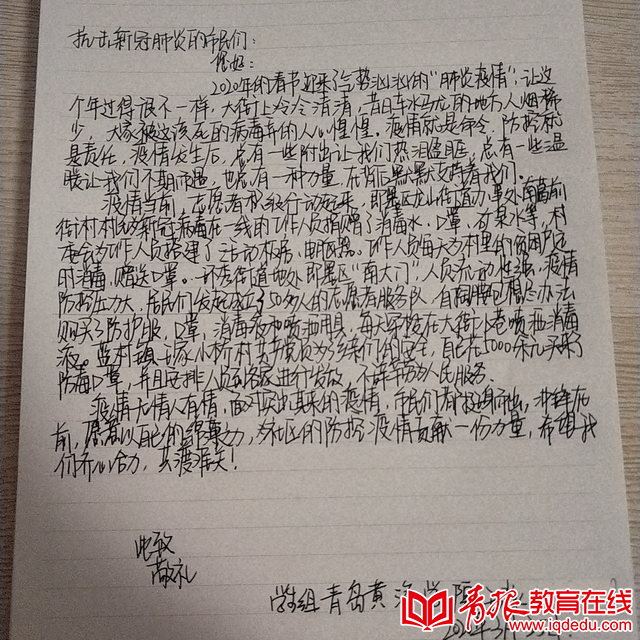 抗击新冠肺炎的市民们:
您好:
2020年的春节迎来了气势汹汹的“肺炎疫情”,让这
个年过得很不一样,大街上冷冷清清,昔日车水马龙的地方人烟稀
少,大家被这该死的病毒弄的人心惶惶,疫情就是命令,防控就
是责任,疫情发生后,总有一些付出让我们热泪盈眶,总有一些温
暖让我们不期而遇,也总有一种力量,在背后默默支撑着我们。
疫情当前,志愿者积极行动起来,即墨区龙山街道办事处南
街村村民为新冠病毒在一线的工作人员捐赠了消毒水、口罩、矿泉水等,村
委会为工作人员搭建了活动板房、电暖器。工作人员每天为村里的
消毒,赠送口罩。环秀街道地处即墨区“南大门”人员流动性强,疫情
防控压力大,居民们发起成立了50多人的志愿者服务队,自掏腰包想尽办法
购买了防护服、口罩,消毒液和喷洒用具,每天穿梭在大街小巷喷洒消毒
液。蓝村镇 小桥村 党员为了乡亲们的安全,自己花5000余元买来了
防毒口罩,并且安排人员到各家进行发放,不辞辛劳为人民服务。
疫情无情人有情,面对突如其来的疫情,市民们都挺身而出,冲锋在
前,愿意以自己的绵薄力,为社区的防控疫情贡献一份力量,希望我
们齐心合力,共渡难关!
此致
敬礼
学生组 青岛黄海学院
青报教育在线
www.iqdedu.com